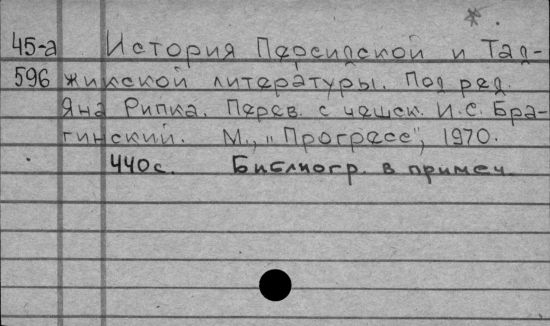 45-а История Персидской и Тад-
596 жикской литературы. Под ред.
Яна Рипка. Перев. с чешск. И.С. Бра-
гинский. М., „Прогресс", 1970.
440с. Библиогр. в примеч.